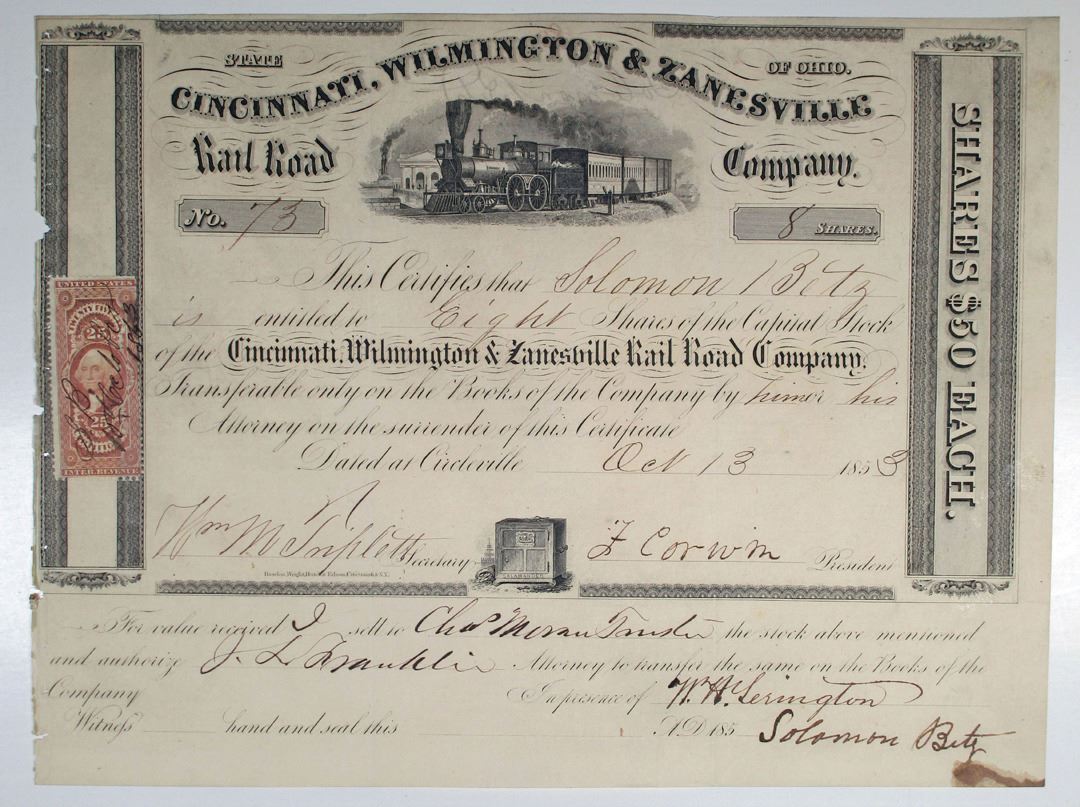 STATE OF OHIO.
CINCINNATI, WILMINGTON & ZANESVILLE
Rail Road Company.
No. 73
8 SHARES.
This Certifies that Solomon Betz
is entitled to Eight Shares of the Capital Stock
of the Cincinnati, Wilmington & Zanesville Rail Road Company.
Transferable only on the Books of the Company by him or his
Attorney on the surrender of this Certificate
Dated at Circleville Oct 13 1853
Wm M Triplett Secretary
F Corwin President
SALAMANDER
SHARES $50 EACH.
UNITED STATES
TWENTY FIVE
25
25
INTER. REVENUE
1863
For value received I sell to Chas Moran Trustee the stock above mentioned
and authorize J. L. Franklin Attorney to transfer the same on the Books of the
Company In presence of
Witness hand and seal this A.D. 185 Solomon Betz